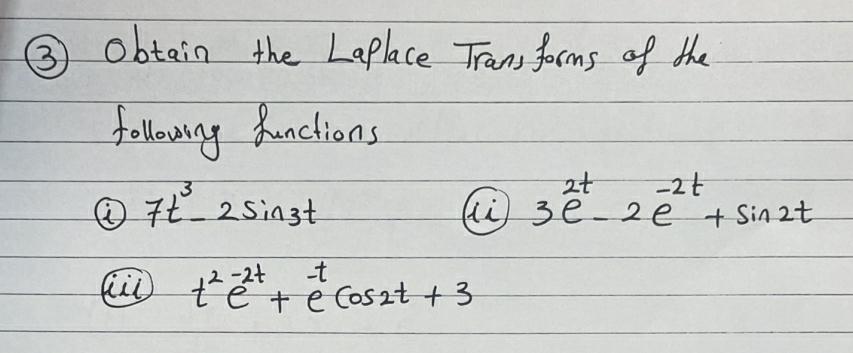 ③ Obtain the Laplace Transforms of the
following functions
ⓘ 7t³ - 2 sin3t ⓘⓘ 3e²ᵗ - 2e⁻²ᵗ + sin 2t
ⓘⓘⓘ t² e⁻²ᵗ + e⁻ᵗ Cos2t + 3